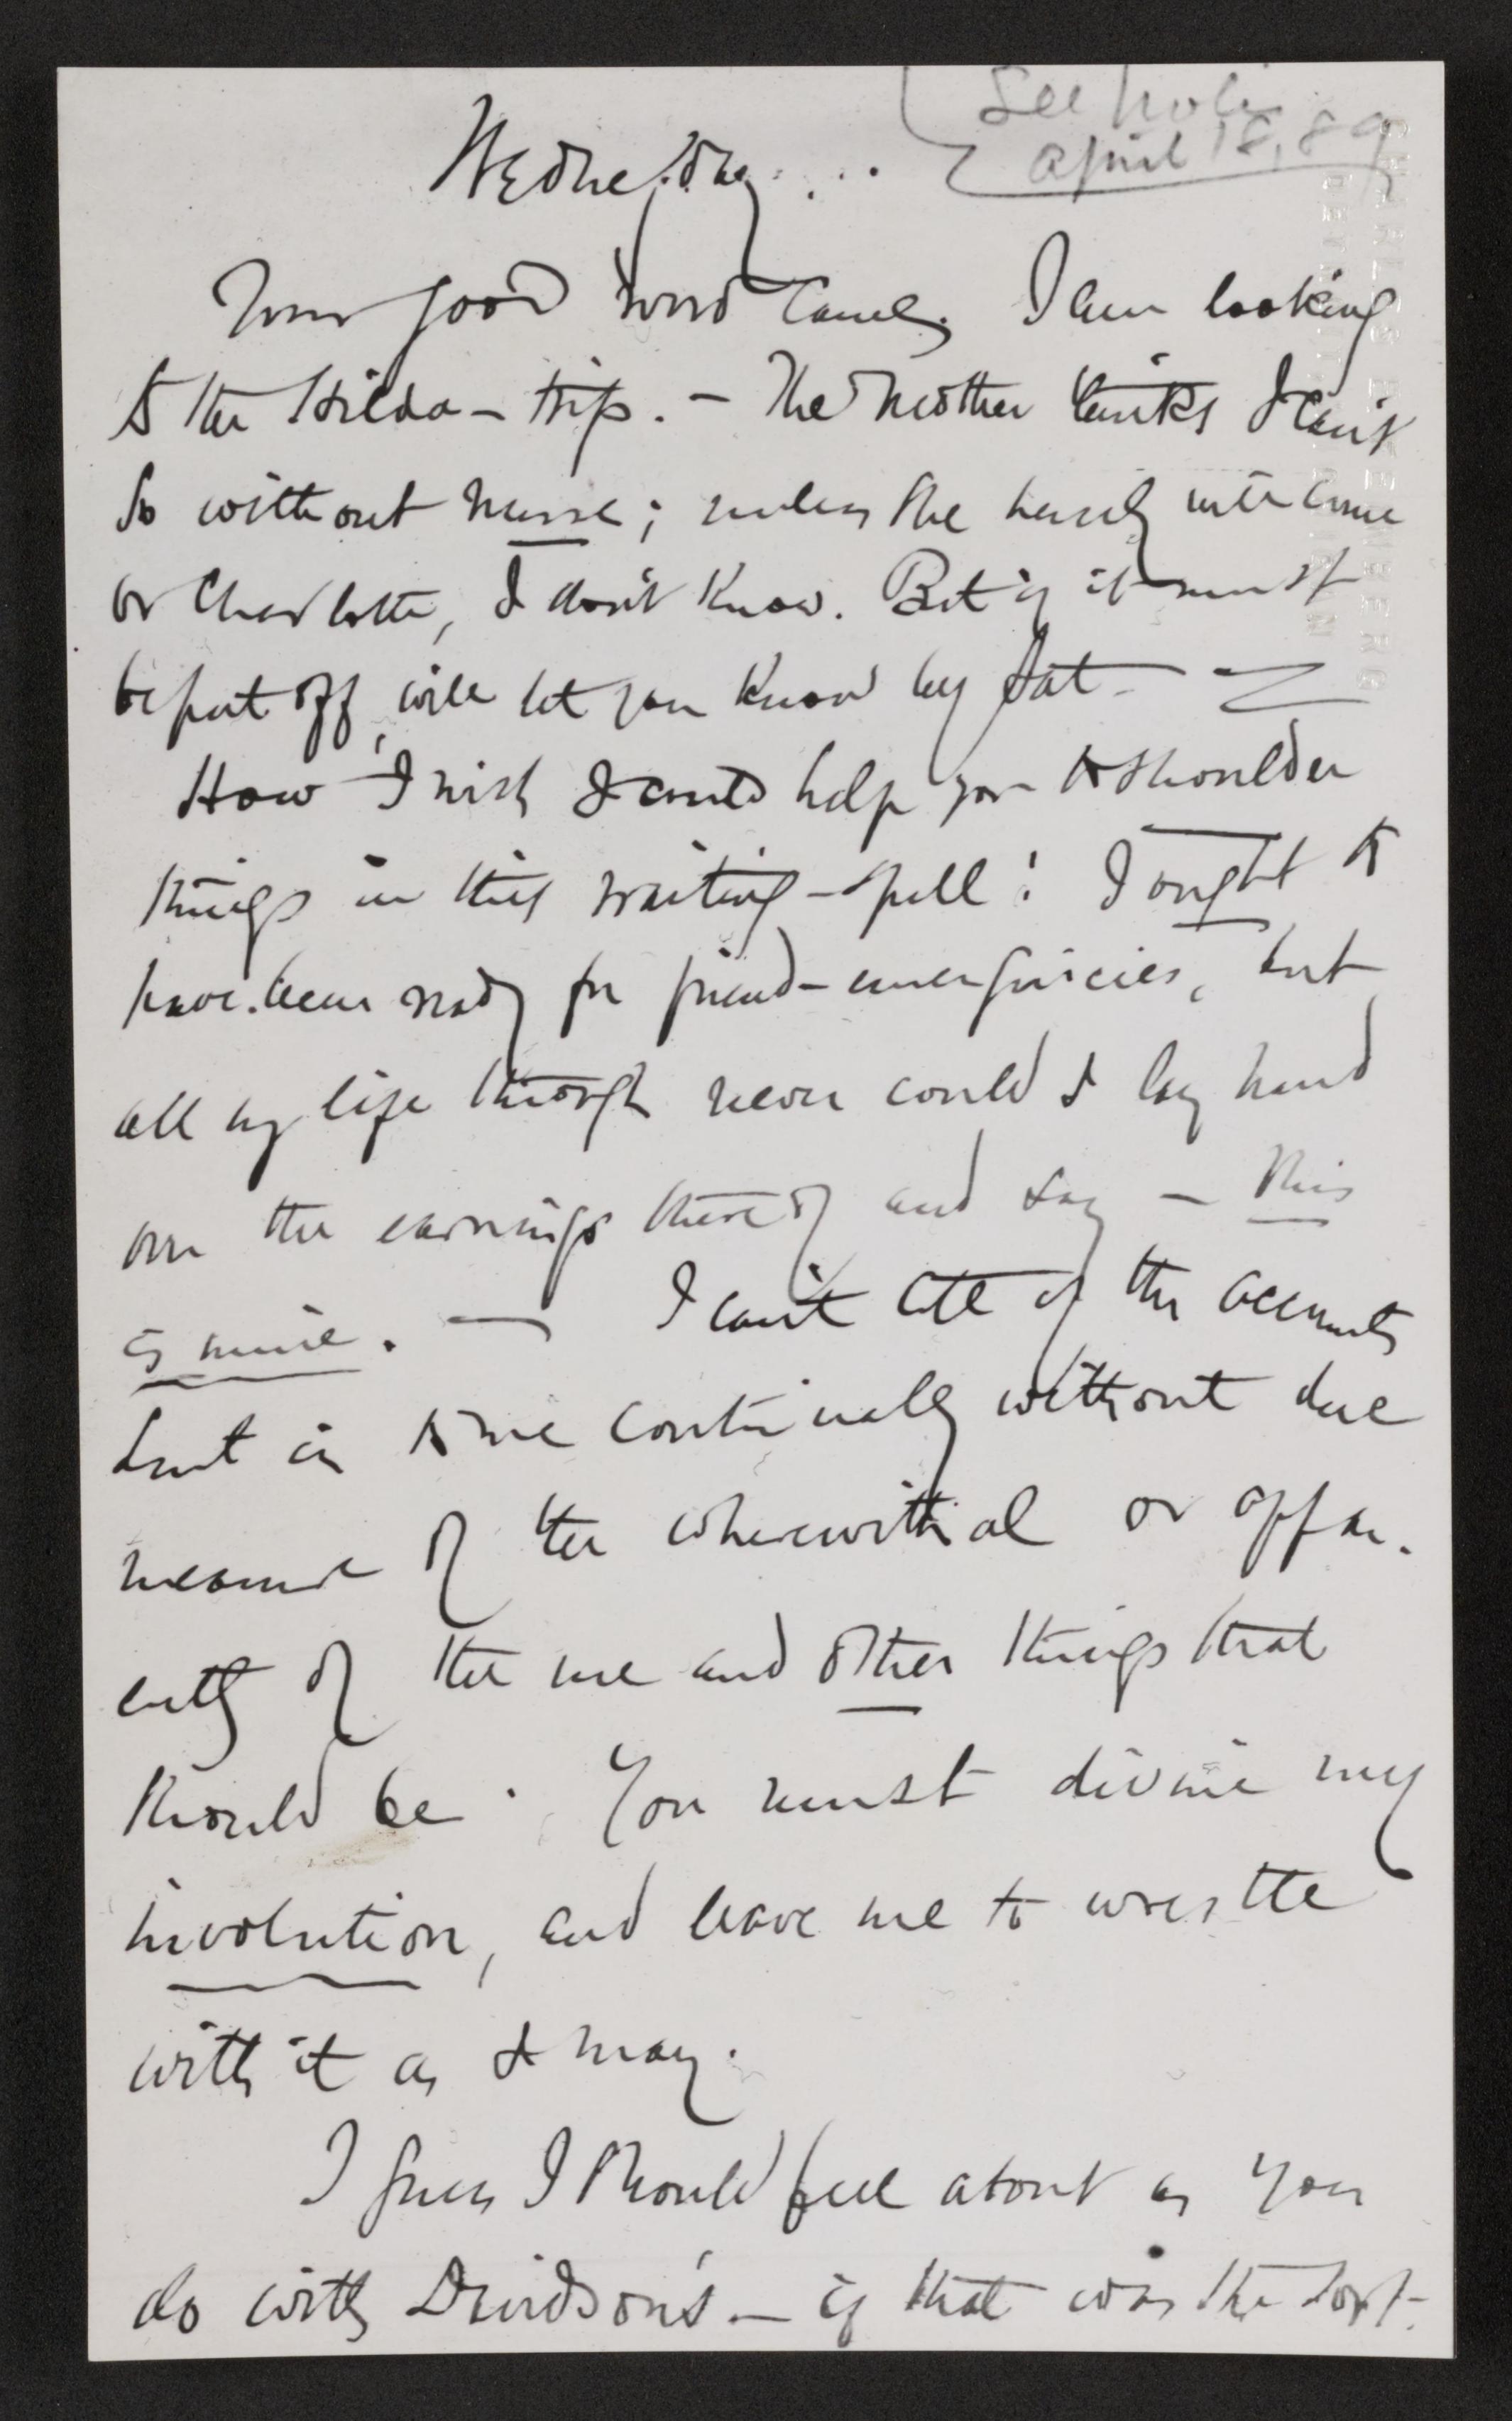 See note
April 18, 89
Wednesday . . .
Your good word came. I am looking
to the Hilda-trip. – The Mother thinks I can't
so without nurse; unless she herself will come
or Charlotte, I don't know. But if it must
be put off, will let you know by Sat –
How I wish I could help you to shoulder
things in this waiting-spell! I ought to
have been ready for friend-emergencies, but
all my life through never could I lay hand
on the earnings thereof and say – this
is mine. — I can't tell of the accounts
sent in to me continually without due
measure of the wherewithal or appar-
ently of the me and other things that
should be. You must divine my
involution, and leave me to wrestle
with it as I may.
I guess I should feel about as you
do with Davidson's – if that was the sort.